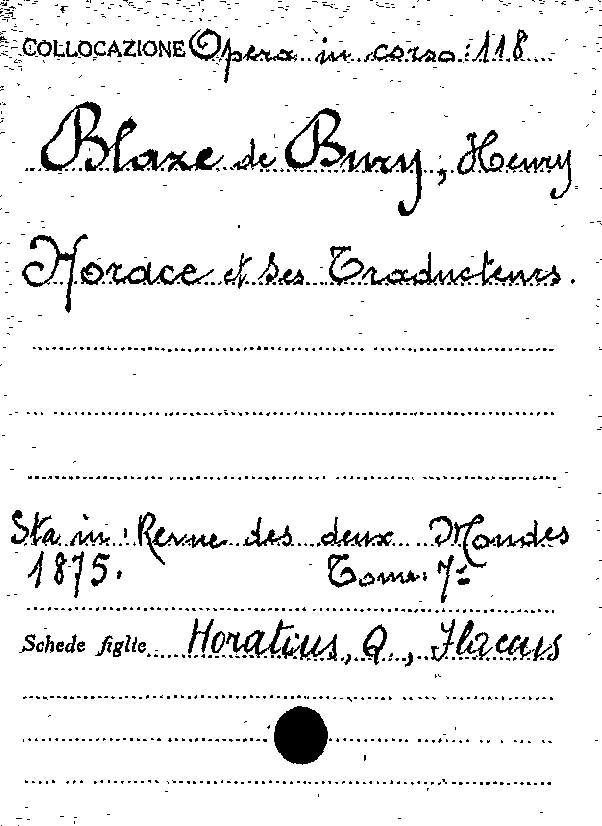 COLLOCAZIONE Opera in corso: 118
Blaze de Bury, Henry
Horace et ses Traducteurs.
Sta in: Revue des deux Mondes
1875. Tome. 7=
Schede figlie Horatius, Q., Flaccus